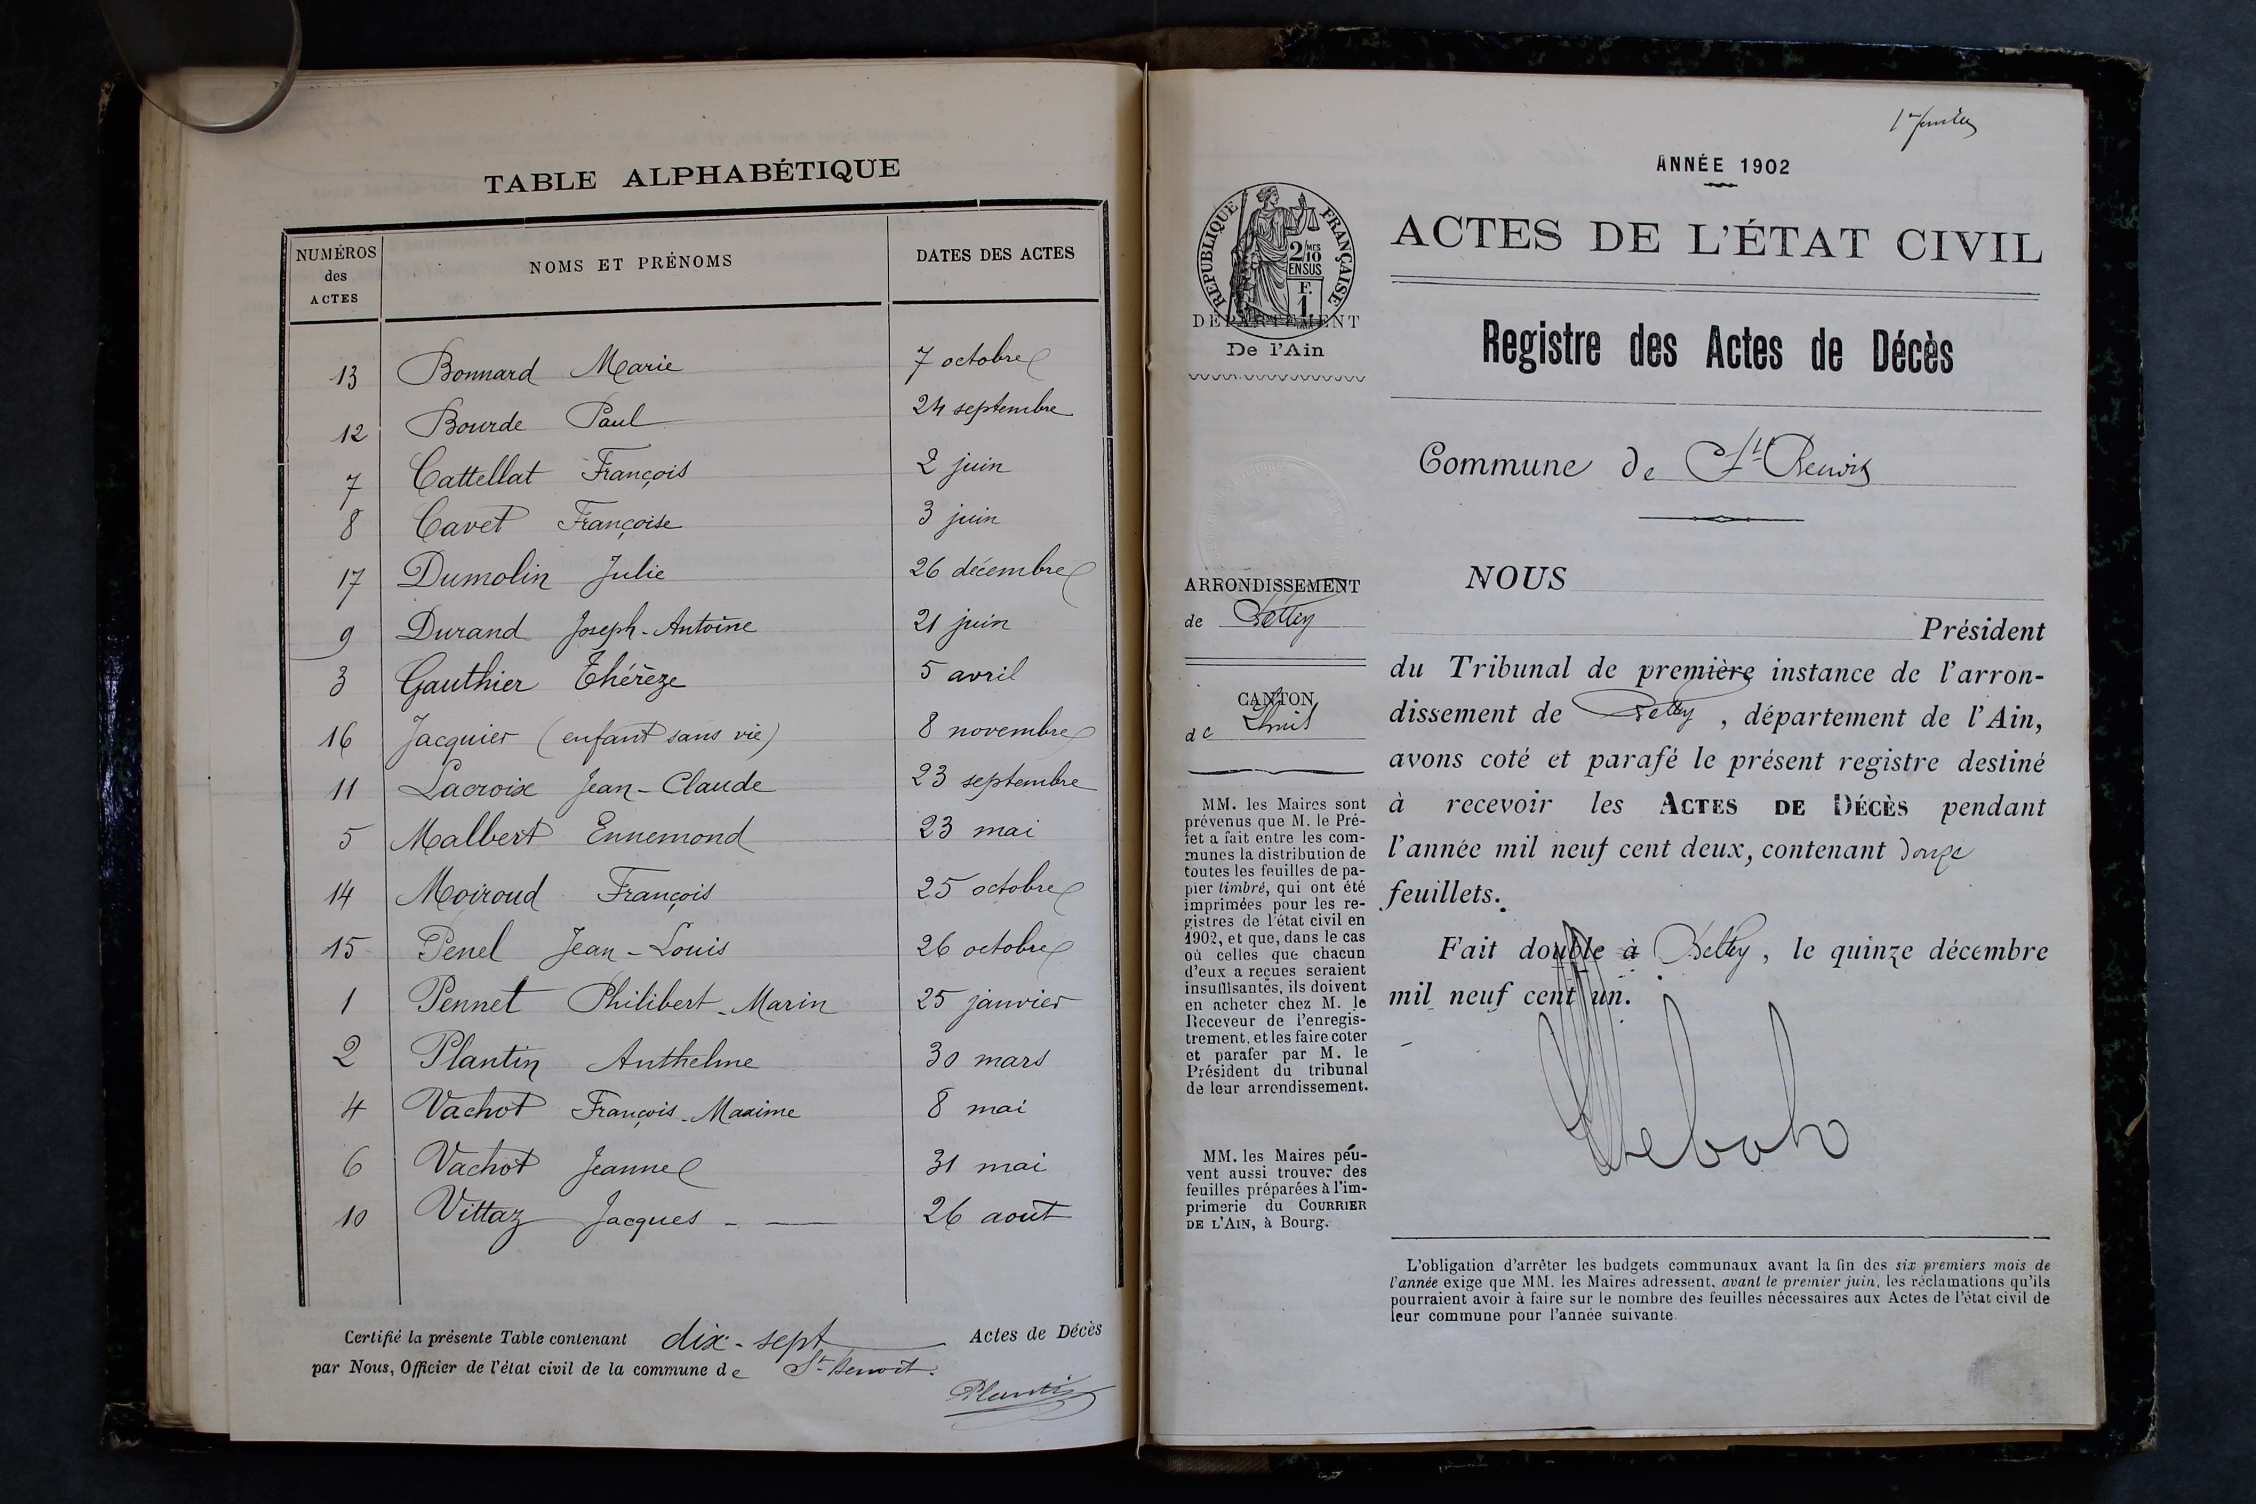 TABLE ALPHABÉTIQUE
NUMÉROS des ACTES NOMS ET PRÉNOMS DATES DES ACTES
13 Bonnard Marie 7 octobre
12 Bourde Paul 24 septembre
7 Cattellat François 2 juin
8 Cavet Françoise 3 juin
17 Dumolin Julie 26 décembre
9 Durand Joseph-Antoine 21 juin
3 Gauthier Thérèze 5 avril
16 Jacquier (enfant sans vie) 8 novembre
11 Lacroix Jean-Claude 23 septembre
5 Malbert Ennemond 23 mai
14 Moiroud François 25 octobre
15 Penel Jean-Louis 26 octobre
1 Pennet Philibert-Marin 25 janvier
2 Plantin Anthelme 30 mars
4 Vachot François-Maxime 8 mai
6 Vachot Jeanne 31 mai
10 Vittaz Jacques - — 26 août
Certifié la présente Table contenant dix-sept Actes de Décès
par Nous, Officier de l'état civil de la commune de St Benoit.
Plantin
ANNÉE 1902
RÉPUBLIQUE FRANÇAISE
2/10 MES
EN SUS
F. 1.
DÉPARTEMENT
De l'Ain
ACTES DE L'ÉTAT CIVIL
Registre des Actes de Décès
Commune de St Benoit
ARRONDISSEMENT
de Belley
CANTON
de Lhuis
MM. les Maires sont
prévenus que M. le Pré-
fet a fait entre les com-
munes la distribution de
toutes les feuilles de pa-
pier timbré, qui ont été
imprimées pour les re-
gistres de l'état civil en
1902, et que, dans le cas
où celles que chacun
d'eux a reçues seraient
insuffisantes, ils doivent
en acheter chez M. le
Receveur de l'enregis-
trement, et les faire coter
et parafer par M. le
Président du tribunal
de leur arrondissement.
MM. les Maires peu-
vent aussi trouver des
feuilles préparées à l'im-
primerie du COURRIER
DE L'AIN, à Bourg.
NOUS
Président
du Tribunal de première instance de l'arron-
dissement de Belley, département de l'Ain,
avons coté et parafé le présent registre destiné
à recevoir les ACTES DE DÉCÈS pendant
l'année mil neuf cent deux, contenant douze
feuillets.
Fait double à Belley, le quinze décembre
mil neuf cent un.
L'obligation d'arrêter les budgets communaux avant la fin des six premiers mois de
l'année exige que MM. les Maires adressent, avant le premier juin, les réclamations qu'ils
pourraient avoir à faire sur le nombre des feuilles nécessaires aux Actes de l'état civil de
leur commune pour l'année suivante.